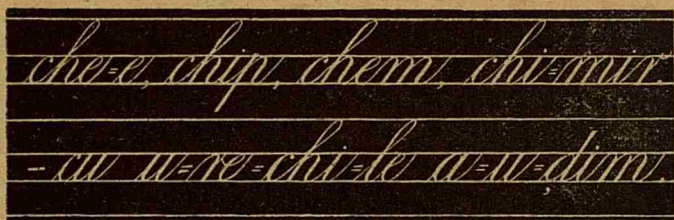 che=e, chip, chem, chi=mir.
- cu u=re=chi=le a=u=dim.